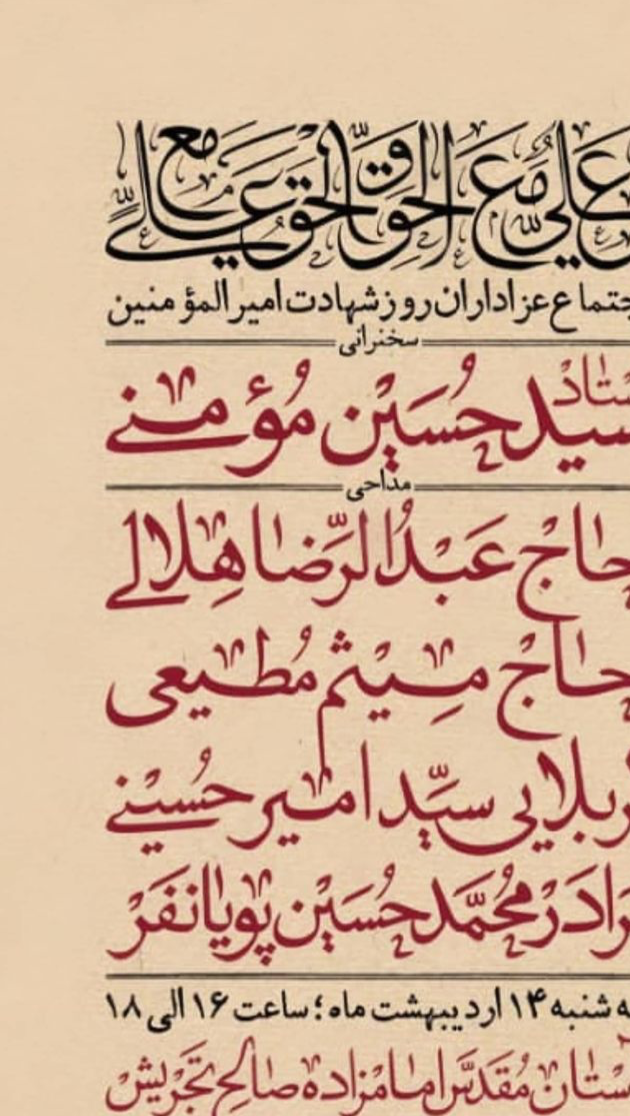 علي مع الحق و الحق مع علي
جتماع عزاداران روز شهادت امیرالمؤمنین
سخنرانی
ستاد
سید حسین مؤمنی
مداحی
حاج عبدالرضا هلالی
حاج میثم مطیعی
ربلایی سید امیر حسینی
رادر محمد حسین پویانفر
ه شنبه ۱۴ اردیبهشت ماه؛ ساعت ۱۶ الی ۱۸
ستان مقدس امامزاده صالح تجریش